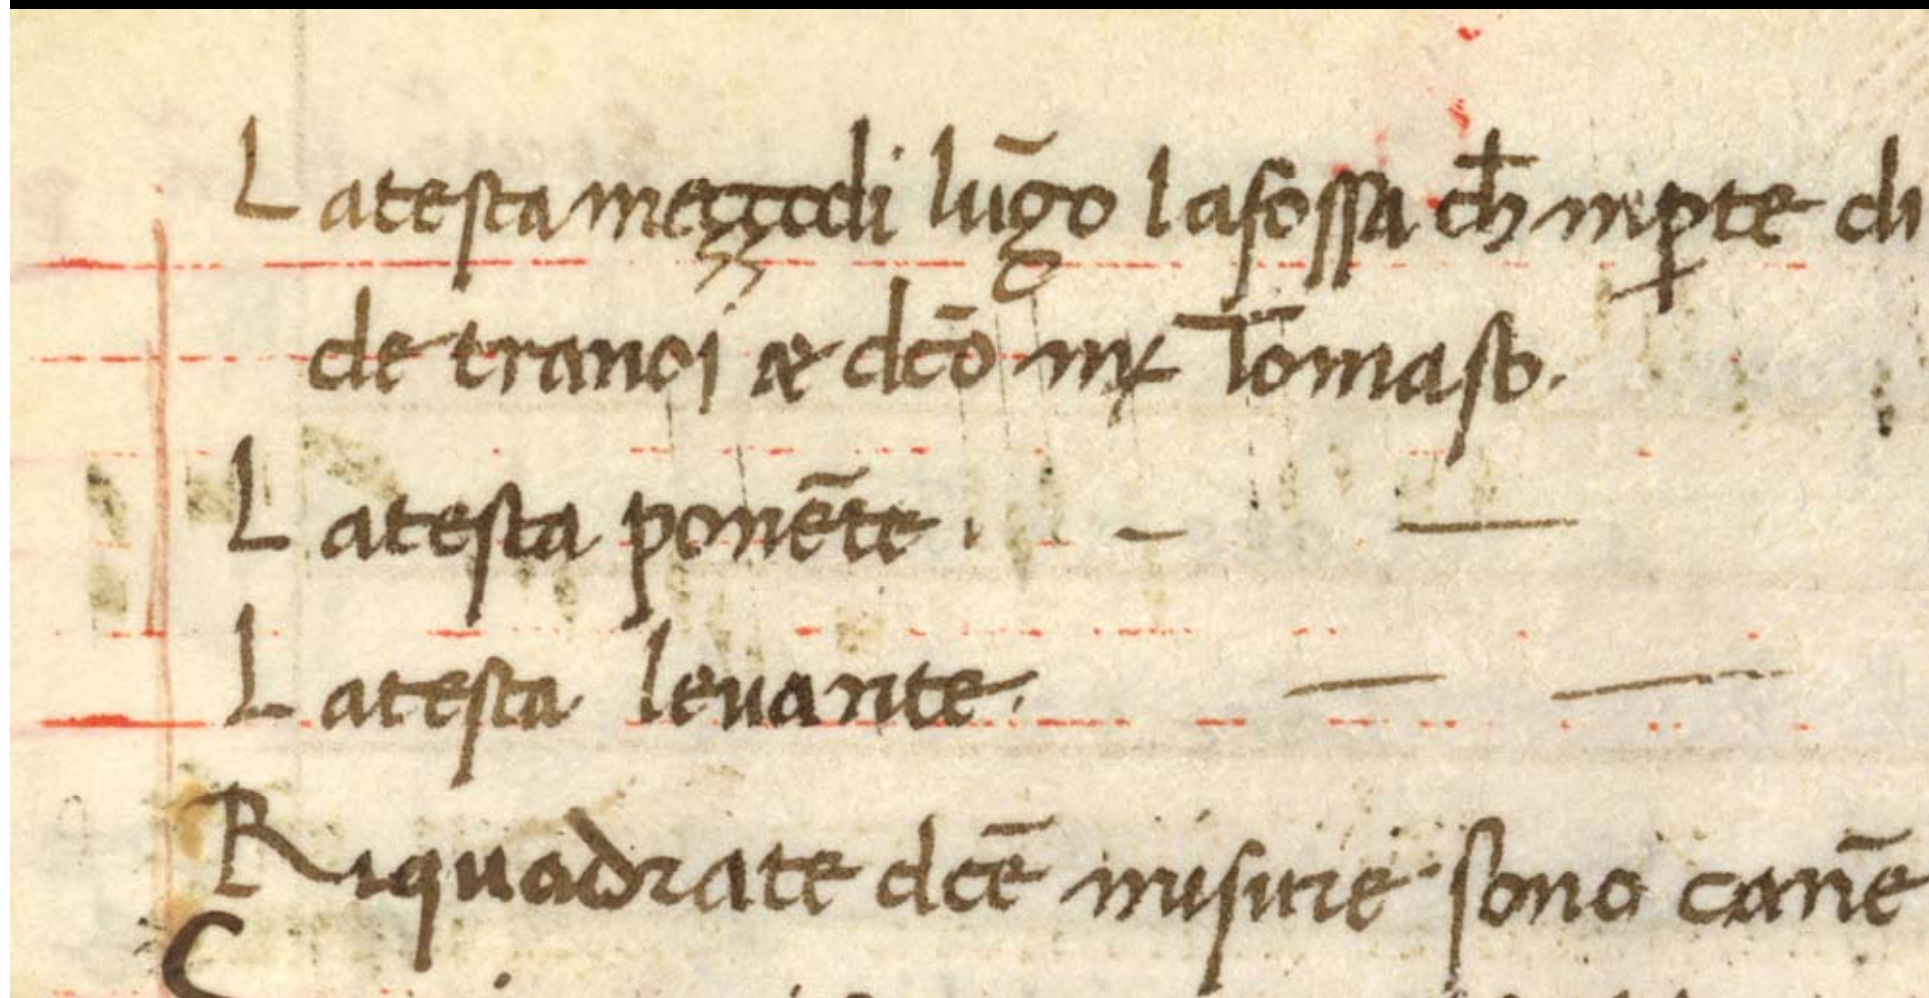 Latesta meççodi lūgo lafossa ch̄ inꝑte di
de tranoi & dcō mx Tōmaso.
Latesta ponēte . – —
Latesta levante. — —
Riquadrate dcē misure sono canē